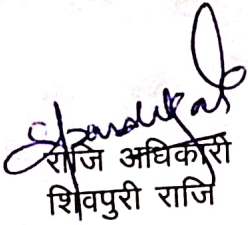 राजि अधिकारी
शिवपुरी राजि